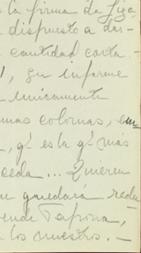 la firma da liga
dispuesto a des-
cantidad corta
, su informe
unicamente
mas colonias, en
, qe es la qe más
ceda... Quieren
quedará redu
ende Tapiona,
los nuestros. —